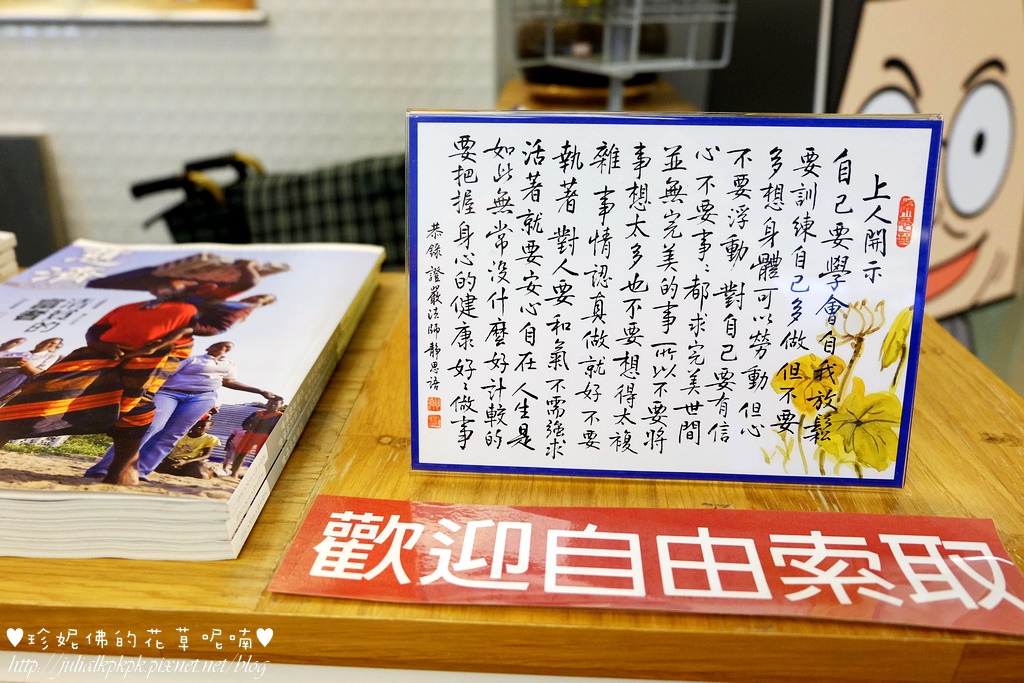 上人開示
自己要學會自我放鬆
要訓練自己多做但不要
多想身體可以勞動但心
不要浮動對自己要有信
心不要事事都求完美世間
並無完美的事所以不要將
事想太多也不要想得太複
雜事情認真做就好不要
執著對人要和氣不需強求
活著就要安心自在人生是
如此無常沒什麼好計較的
要把握身心的健康好好做事
恭錄證嚴法師靜思語
慈濟
歡迎自由索取
♥珍妮佛的花草呢喃♥
http://julialkpkpk.pixnet.net/blog